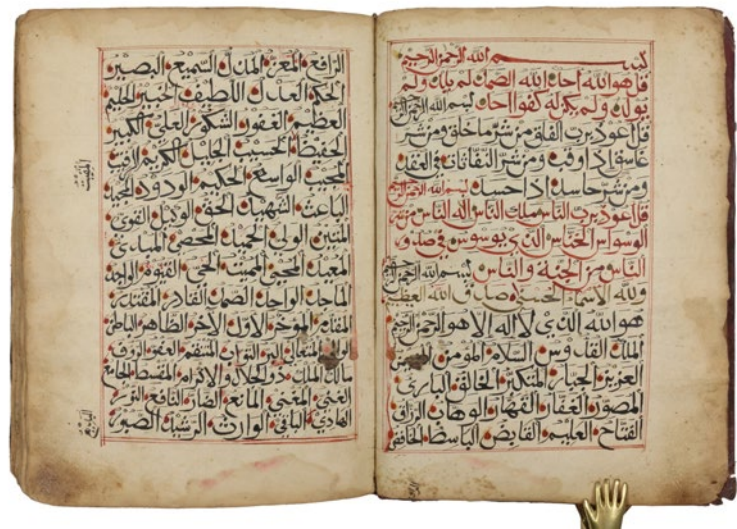 بسم الله الرحمن الرحيم
قل هو الله احد الله الصمد لم يلد ولم
يولد ولم يكن له كفوا احد بسم الله الرحمن الرحيم
قل اعوذ برب الفلق من شر ما خلق ومن شر
غاسق اذا وقب ومن شر النفاثات في العقد
ومن شر حاسد اذا حسد بسم الله الرحمن الرحيم
قل اعوذ برب الناس ملك الناس اله الناس من شر
الوسواس الخناس الذي يوسوس في صدور
الناس من الجنة والناس بسم الله الرحمن الرحيم
ولله الاسماء الحسنى صدق الله العظيم
هو الله الذي لا اله الا هو الرحمن الرحيم
الملك القدوس السلام المؤمن المهيمن
العزيز الجبار المتكبر الخالق البارئ
المصور الغفار القهار الوهاب الرزاق
الفتاح العليم القابض الباسط الخافض
الرافع المعز المذل السميع البصير
الحكم العدل اللطيف الخبير الحليم
العظيم الغفور الشكور العلي الكبير
الحفيظ الحسيب الجليل الكريم الرقيب
المجيب الواسع الحكيم الودود المجيد
الباعث الشهيد الحق الوكيل القوي
المتين الولي الحميد المحصي المبدئ
المعيد المحيي المميت الحي القيوم الواجد
الماجد الواحد الصمد القادر المقتدر
المقدم المؤخر الاول الاخر الظاهر الباطن
الوالي المتعال البر التواب المنتقم العفو الرؤف
مالك الملك ذو الجلال والاكرام المقسط الجامع
الغني المغني المانع الضار النافع النور
الهادي الباقي الوارث الرشيد الصبور